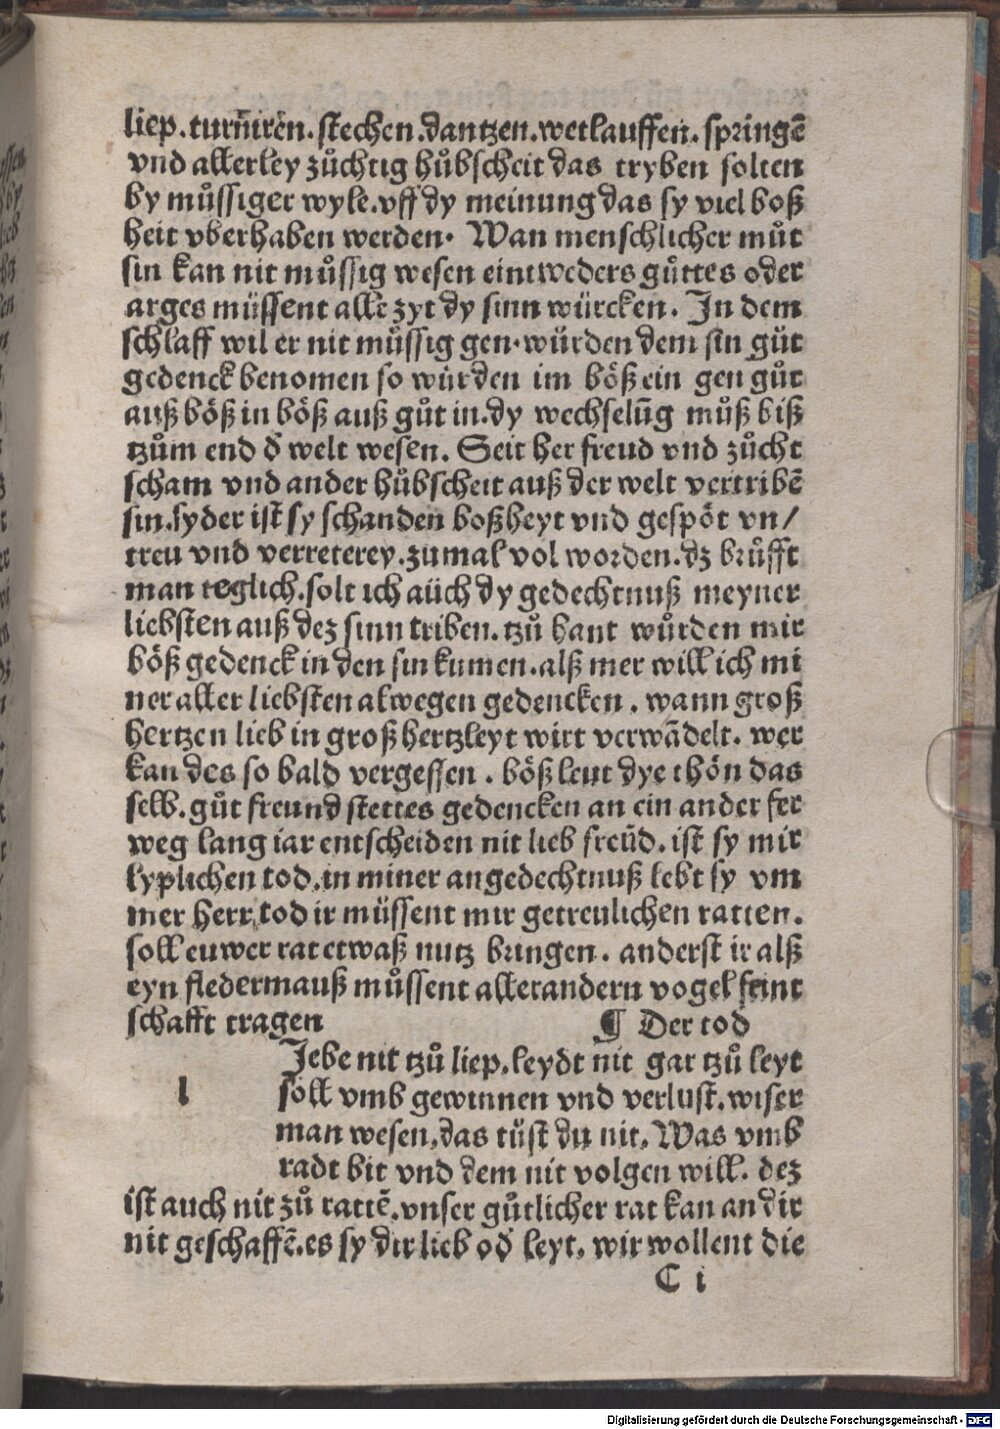 liep. turn̄irēn. stechen. dantzen. wetlauffen. springē
vnd allerley zůchtig hůbscheit das tryben solten
by můssiger wyle. vff dy meinung das sy viel boß
heit vberhaben werden. Wan menschlicher můt
sin kan nit můssig wesen eintweders gůttes oder
arges müssent alle zyt dy sinn würcken. In dem
schlaff wil er nit můssig gen. würden dem sin gůt
gedenck benomen so würden im böß ein gen gůt
auß böß in böß auß gůt in. dy wechselūg můß biß
tzům end d̄ welt wesen. Seit her freud vnd zůcht
scham vnd ander hůbscheit auß der welt vertribē
sin. syder ist sy schanden boßheyt vnd gespöt vn/
treu vnd verreterey. zumal vol worden. dz brůfft
man teglich. solt ich aüch dy gedechtnuß meyner
liebsten auß dez sinn triben. tzů hant wůrden mir
böß gedenck in den sin kumen. alß mer will ich mi
ner aller liebsten alwegen gedencken. wann groß
hertzen lieb in groß hertzleyt wirt verwādelt. wer
kan des so bald vergessen. böß leut dye thön das
selb. gůt freund stettes gedencken an ein ander fer
weg lang iar entscheiden nit lieb freüd. ist sy mir
lyplichen tod. in miner angedechtnuß lebt sy vm
mer herr tod ir müssent mir getreulichen ratten.
soll euwer rat etwaß nutz bringen. anderst ir alß
eyn fledermauß můssent aller andern vogel feint
schafft tragen ¶ Der tod
Iebe nit tzů liep. leydt nit gar tzů leyt
l soll vmb gewinnen vnd verlust. wiser
man wesen. das tüst du nit. Was vmb
radt bit vnd dem nit volgen will. dez
ist auch nit zů rattē. vnser gůtlicher rat kan an dir
nit geschaffē. es sy dir lieb od̄ leyt. wir wollent die
C i
Digitalisierung gefördert durch die Deutsche Forschungsgemeinschaft - DFG